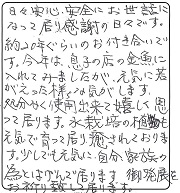 日々安心、安全にお世話に
なって居り感謝の日々です。
約20年ぐらいのお付き合いで
す。今年は、息子の店の金魚に
入れてみましたが、元気に若
がえった様な気がします。
処分やく使用出来て嬉しく思
って居ります。水栽培の植物も
元気で育って居り癒されておりま
す。少しでも元気に自分、家族の
為とはげんで居ります。御発展を
お祈り致して居ります。